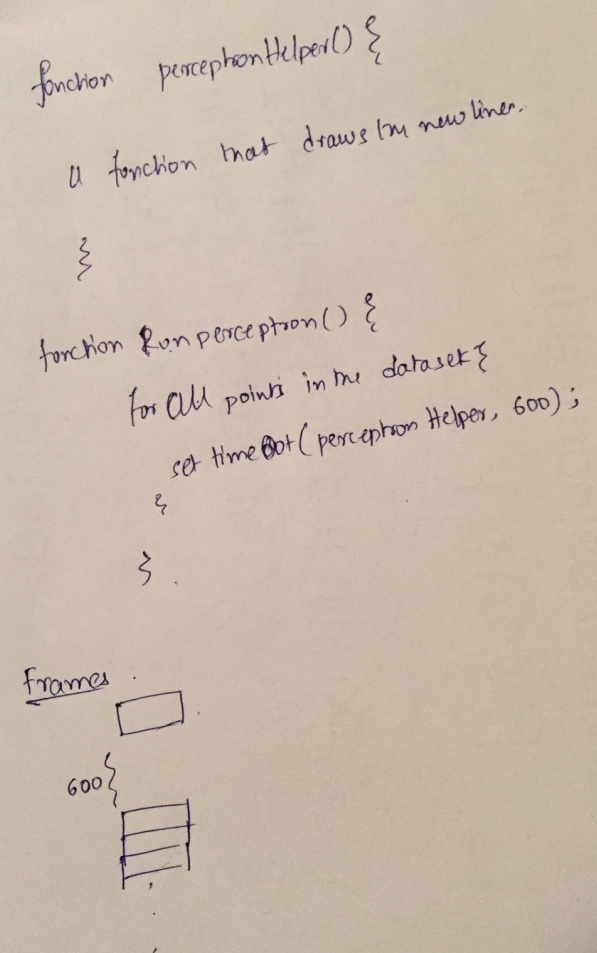 function perceptronHelper() {
// function that draws the new lines.
}
function Runperceptron() {
for all points in the dataset {
set timeout (perceptron Helper, 600);
}
}
Frames
600 {